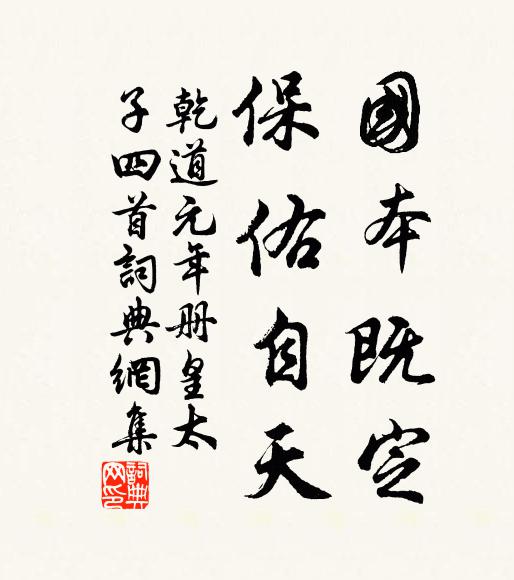 國本既定
保佑自天
乾道元年册皇太
子四首詞典網集
詞典
网印